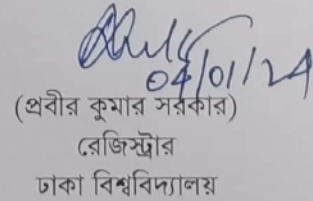 04/01/24
(প্রবীর কুমার সরকার)
রেজিস্ট্রার
ঢাকা বিশ্ববিদ্যালয়